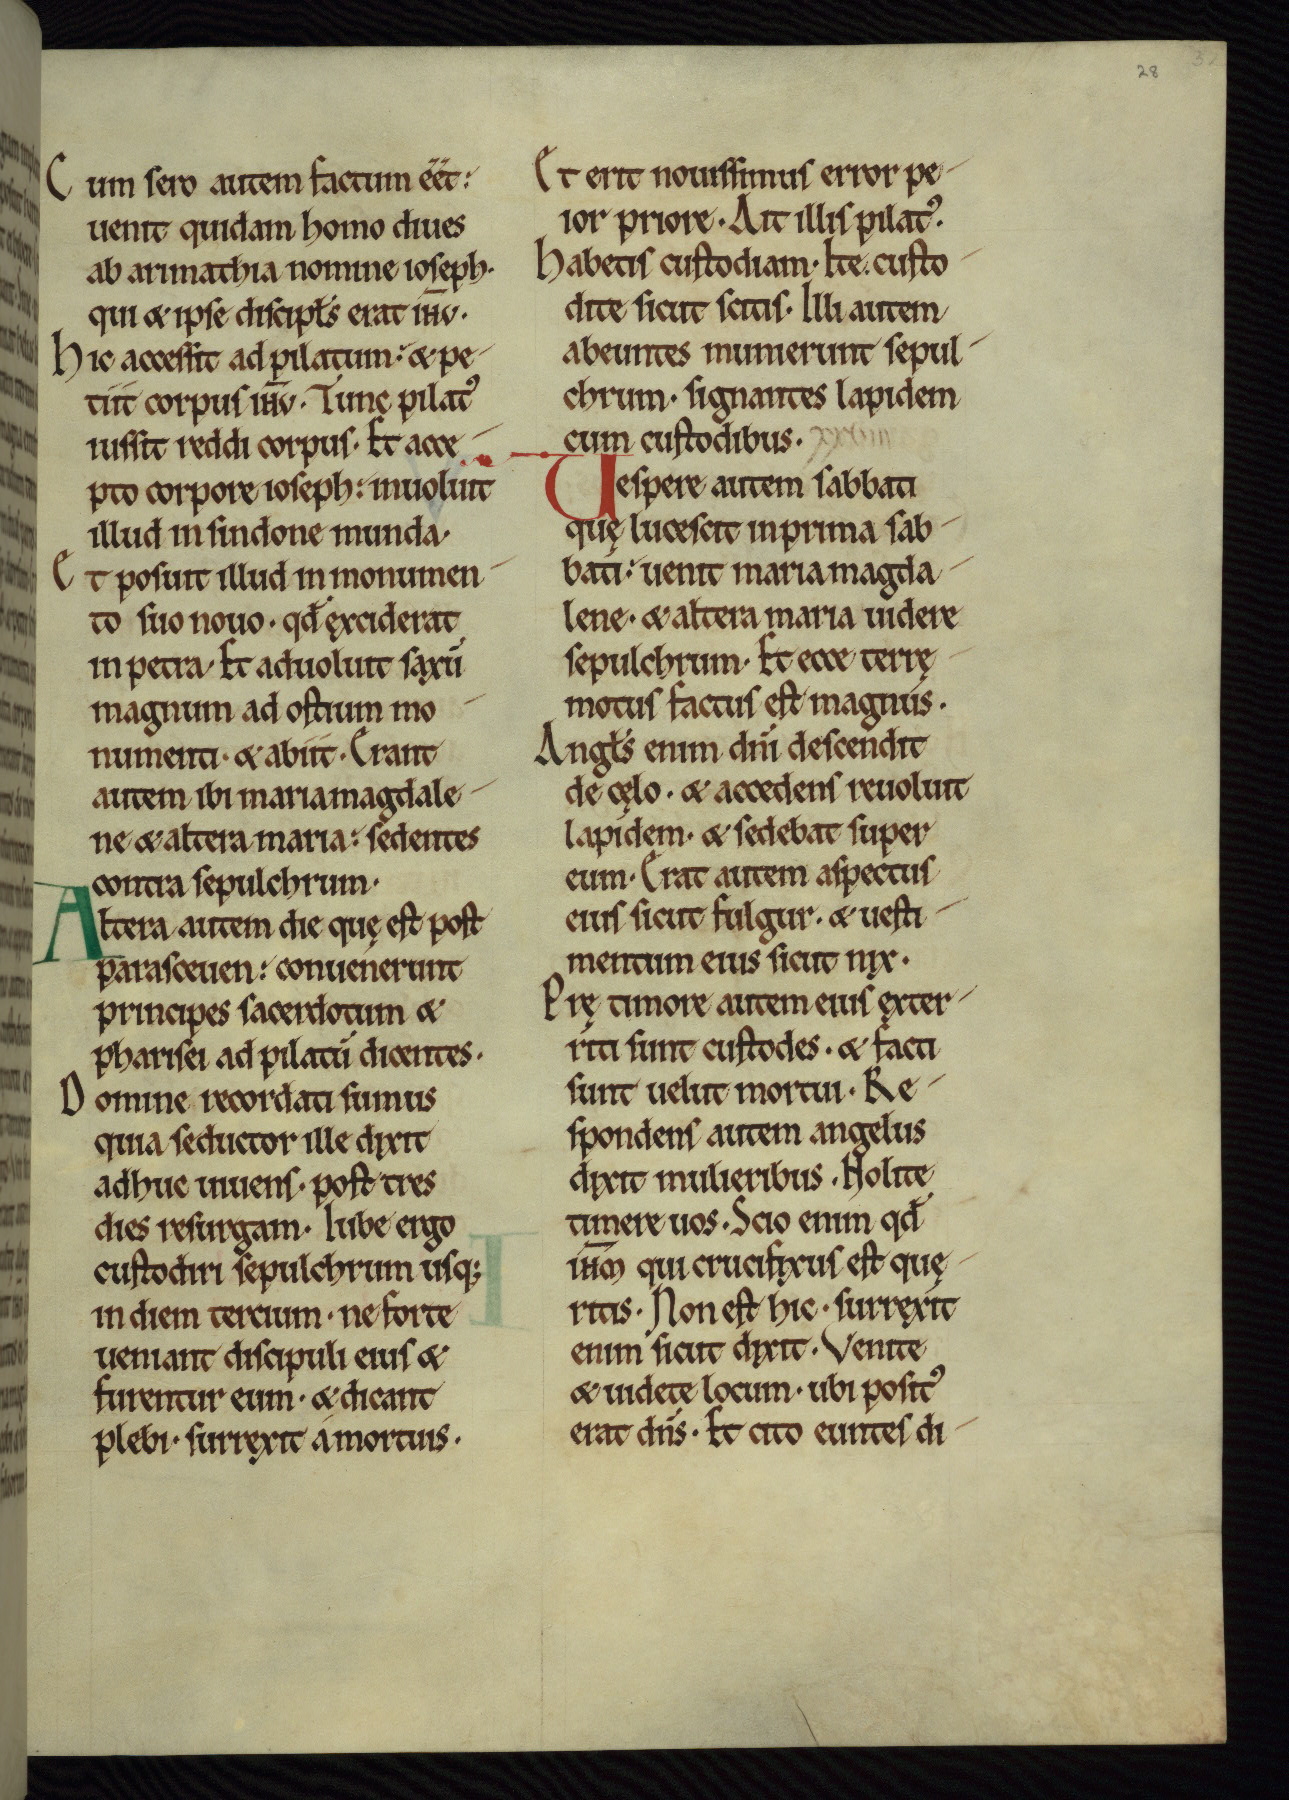 28
Cum sero autem factum eēt:
uenit quidam homo diues
ab arimathia nomine ioseph.
qui & ipse discipłs erat ihū.
Hic accessit ad pilatum: & pe-
tiit corpus ihū. Tunc pilatꝰ
iussit reddi corpus. Et acce-
pto corpore ioseph: inuoluit
illud in sindone munda.
Et posuit illud in monumen-
to suo nouo. qđ exciderat
in petra. Et aduoluit saxū
magnum ad ostium mo-
numenti. & abiit. Erant
autem ibi maria magdale-
ne & altera maria: sedentes
contra sepulchrum.
Altera autem die quę est post
parasceuen: conuenerunt
principes sacerdotum &
pharisei ad pilatū dicentes.
Domine recordati sumus
quia seductor ille dixit
adhuc uiuens. post tres
dies resurgam. Iube ergo
custodiri sepulchrum usq;
in diem tercium. ne forte
ueniant discipuli eius &
furentur eum. & dicant
plebi. surrexit á mortuis.
Et erit nouissimus error pe-
ior priore. Ait illis pilatꝰ.
Habetis custodiam. Ite. custo-
dite sicut scitis. Illi autem
abeuntes munierunt sepul-
chrum. signantes lapidem
cum custodibus.
Uespere autem sabbati
quę lucescit in prima sab-
bati: uenit maria magda-
lene. & altera maria uidere
sepulchrum. Et ecce terrę-
motus factus est magnus.
Angłs enim dn̄i descendit
de cęlo. & accedens reuoluit
lapidem. & sedebat super
eum. Erat autem aspectus
eius sicut fulgur. & uesti-
mentum eius sicut nix.
Prę timore autem eius exter-
riti sunt custodes. & facti
sunt uelut mortui. Re-
spondens autem angelus
dixit mulieribus. Nolite
timere uos. Scio enim qđ
ihm̄ qui crucifixus est quę-
ritis. Non est hic. surrexit
enim sicut dixit. Venite
& uidete locum. ubi positꝰ
erat dn̄s. Et cito euntes di-